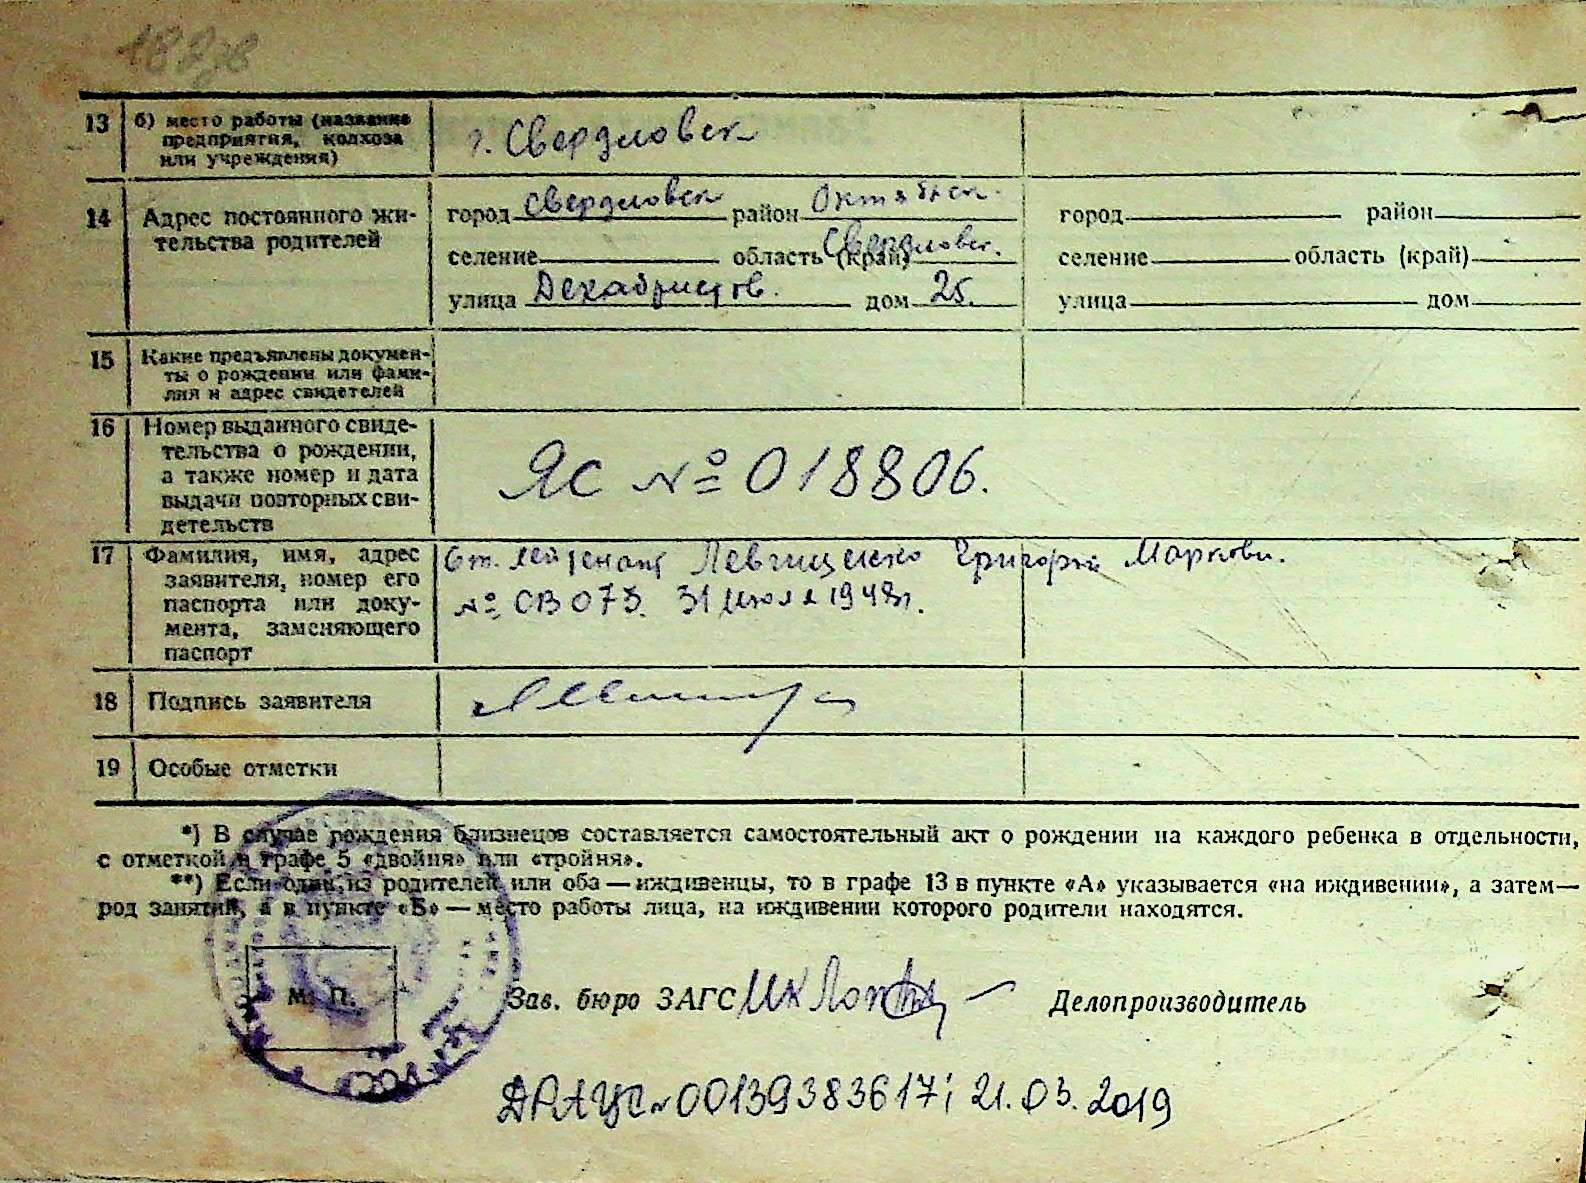 187зв
13 б) место работы (название предприятия, колхоза или учреждения) г. Свердловск
14 Адрес постоянного жи-
тельства родителей
город Свердловск район Октябрьск. город район
селение область (край) Свердловск. селение область (край)
улица Декабристов. дом 25. улица дом
15 Какие предъявлены докумен-
ты о рождении или фами-
лия и адрес свидетелей
16 Номер выданного свиде-
тельства о рождении,
а также номер и дата
выдачи повторных сви-
детельств
ЯС № 018806.
17 Фамилия, имя, адрес
заявителя, номер его
паспорта или доку-
мента, заменяющего
паспорт
Ст. лейтенант Левтищенко Григорий Маркови.
№ СВ 073. 31 июля 1948г.
18 Подпись заявителя
19 Особые отметки
*) В случае рождения близнецов составляется самостоятельный акт о рождении на каждого ребенка в отдельности,
с отметкой в графе 5 «двойня» или «тройня».
**) Если один из родителей или оба — иждивенцы, то в графе 13 в пункте «А» указывается «на иждивении», а затем —
род занятий, а в пункте «Б» — место работы лица, на иждивении которого родители находятся.
М. П. Зав. бюро ЗАГС Делопроизводитель
ДРАЦС № 00139383617; 21.03.2019